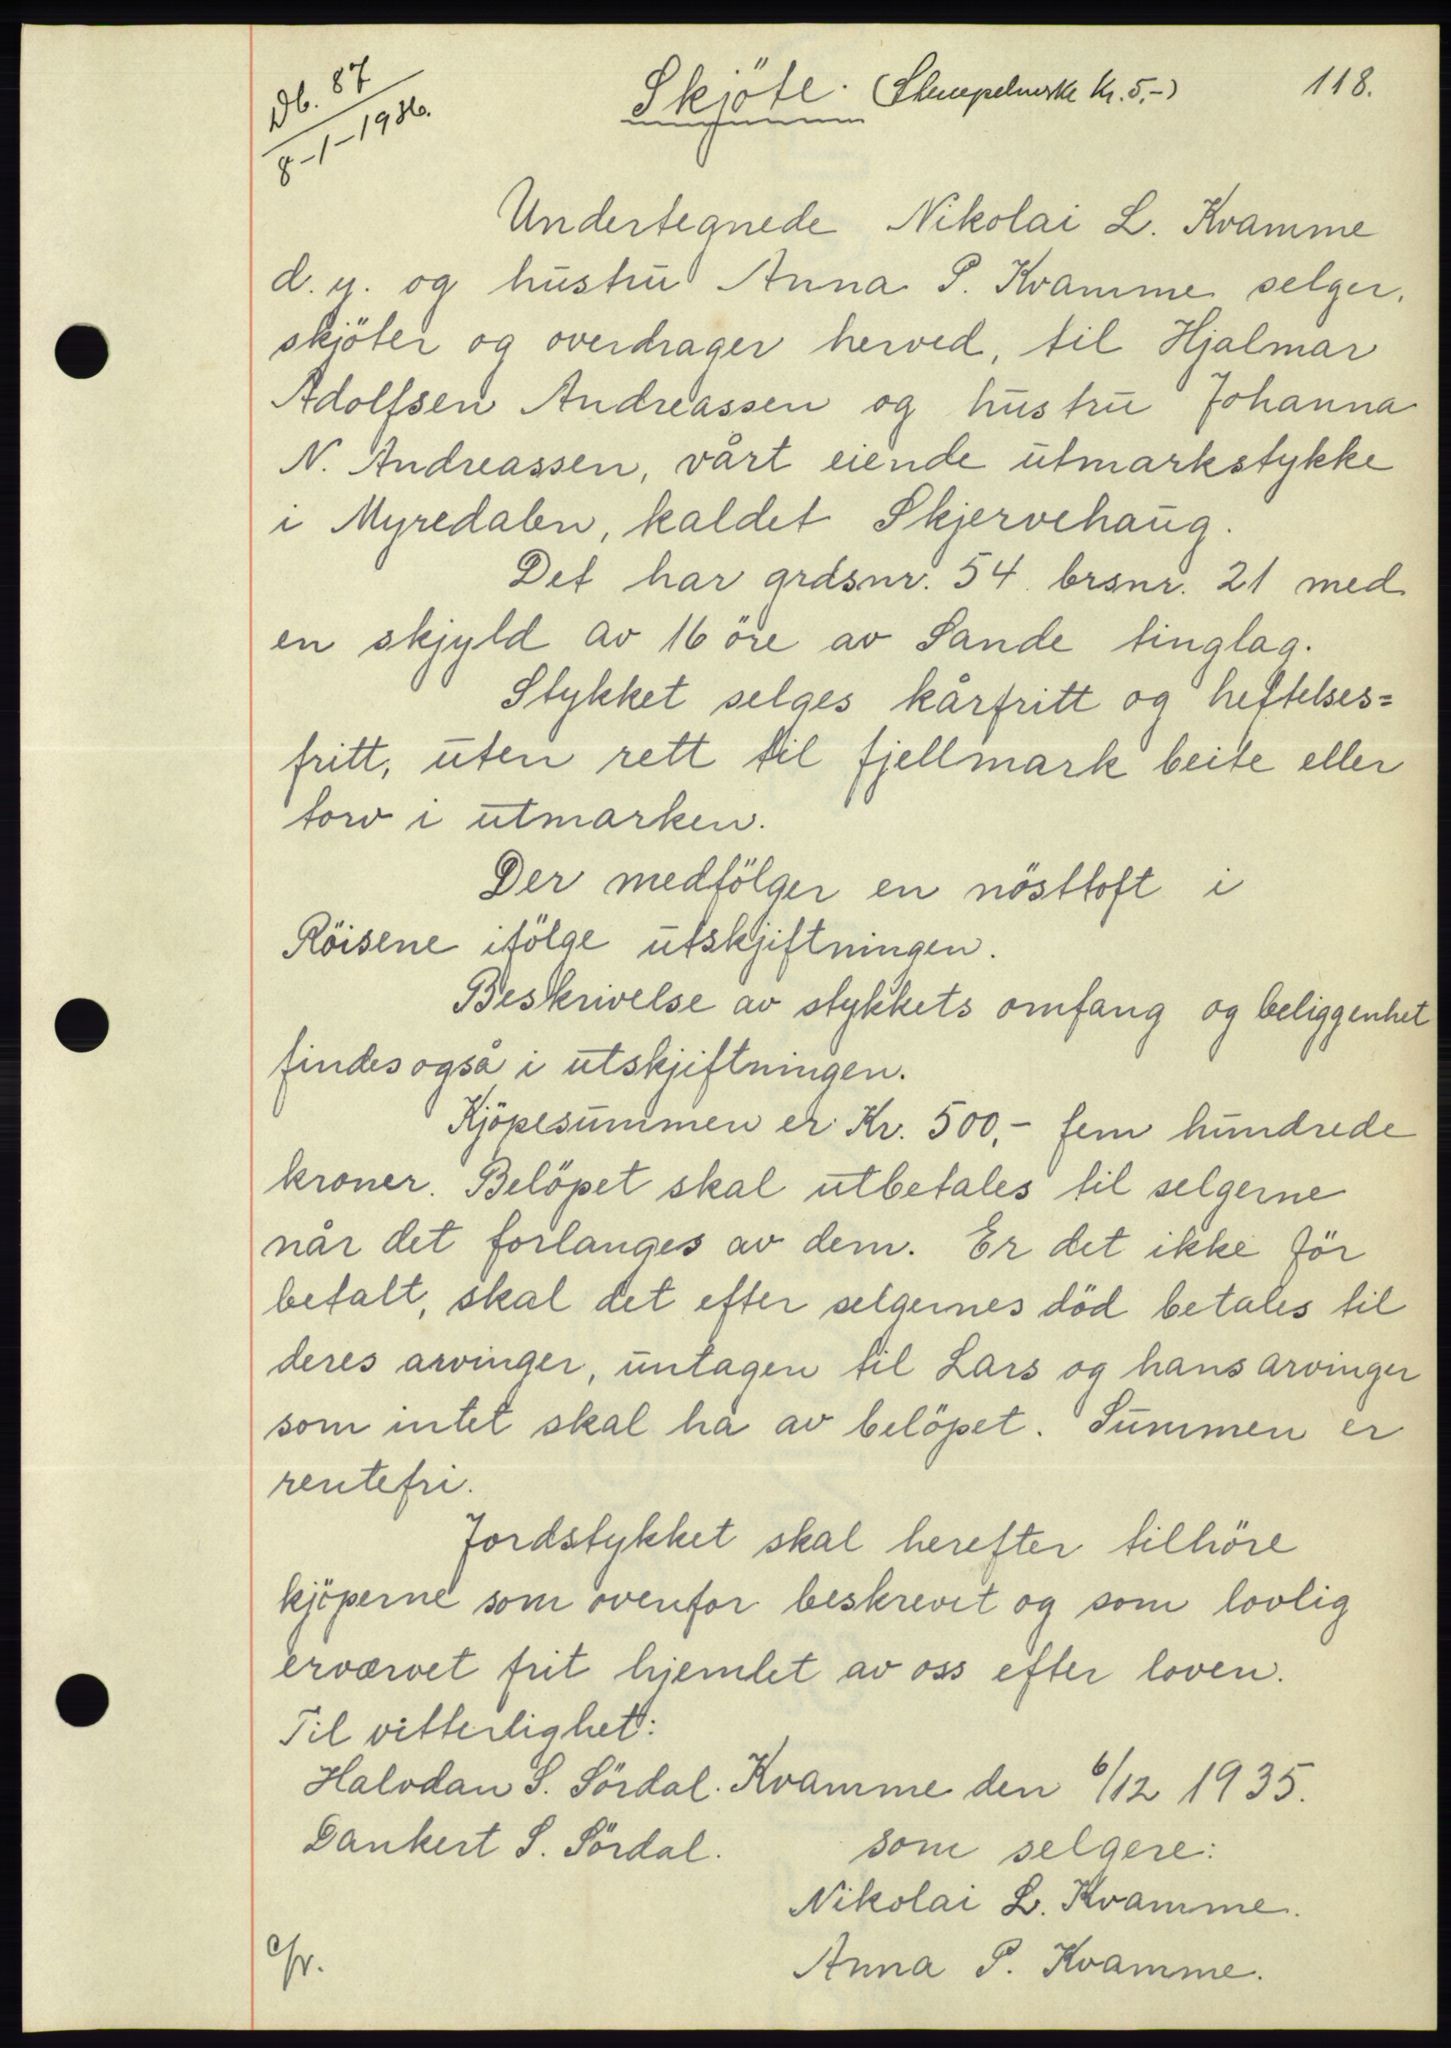 Db. 87
8-1-1936.
Skjöte. (Stempelmerke Kr. 5,-) 118.
Undertegnede Nikolai L. Kvamme
d. y. og hustru Anna P. Kvamme selger,
skjöter og overdrager herved, til Hjalmar
Adolfsen Andreassen og hustru Johanna
N. Andreassen, vårt eiende utmarkstykke
i Myredalen, kaldet Skjervehaug.
Det har grdsnr. 54 brsnr. 21 med
en skjyld av 16 öre av Sande tinglag.
Stykket selges kårfritt og heftelses=
fritt, uten rett til fjellmark beite eller
torv i utmarken.
Der medfölger en nösttoft i
Röisene ifölge utskjiftningen.
Beskrivelse av stykkets omfang og beliggenhet
findes også i utskjiftningen.
Kjöpesummen er Kr. 500,- fem hundrede
kroner. Belöpet skal utbetales til selgerne
når det forlanges av dem. Er det ikke för
betalt, skal det efter selgernes död betales til
deres arvinger, untagen til Lars og hans arvinger
som intet skal ha av belöpet. Summen er
rentefri.
Jordstykket skal herefter tilhöre
kjöperne som ovenfor beskrevet og som lovlig
erværvet frit hjemlet av oss efter loven.
Til vitterlighet:
Halvdan S. Sördal. Kvamme den 6/12 1935.
Dankert S. Sördal. som selgere:
Nikolai L. Kvamme.
Anna P. Kvamme.